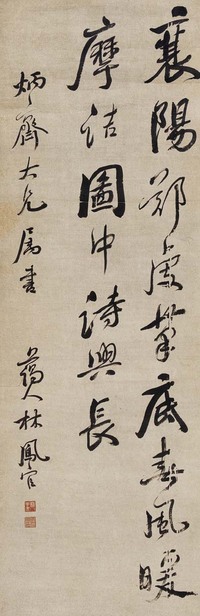 襄陽鄭虔筆底春風暖
摩詰圖中詩興長
炳齋大兄属書
葯人林鳳官